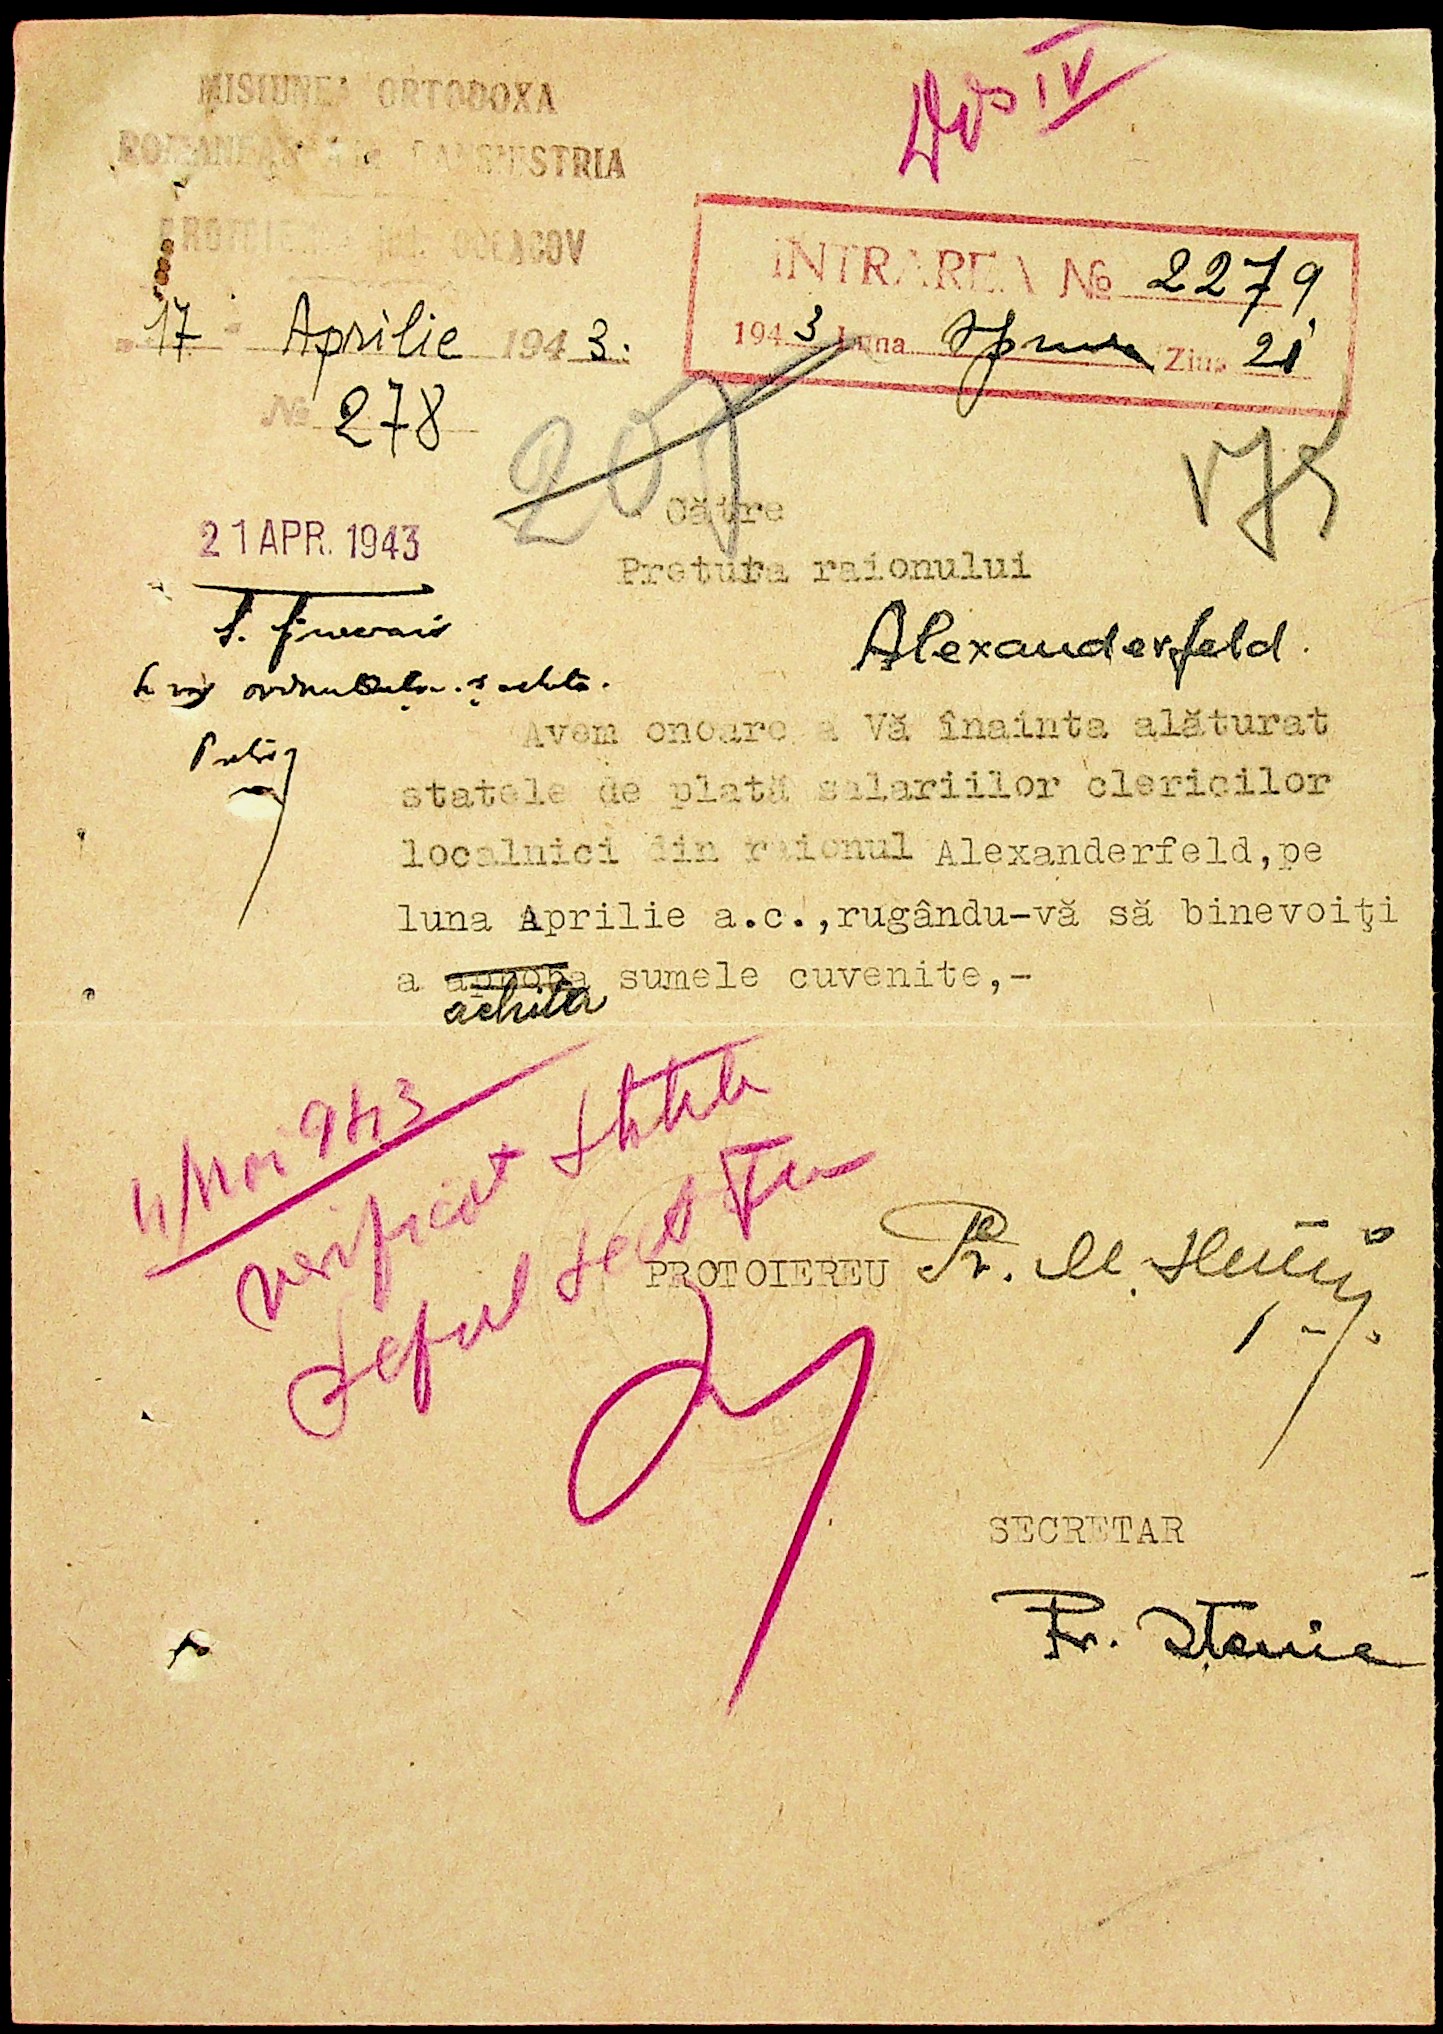 Dos IV
MISIUNEA ORTODOXA
ROMANEASCA TRANSNISTRIA
JUD. OCEACOV
INTRAREA № 2279
1943 Luna Aprilie Ziua 21
17 Aprilie 1943.
№ 278
21 APR. 1943
Către
Pretura raionului
Alexanderfeld.
S. financiar
Avem onoare a Vă înainta alăturat
statele de plată salariilor clericilor
localnici din raionul Alexanderfeld,pe
luna Aprilie a.c.,rugându-vă să binevoiţi
a aproba sumele cuvenite,-
achita
4 Mai 943
verificat statele
Șeful
PROTOIEREU Pr. M.
SECRETAR
Pr.